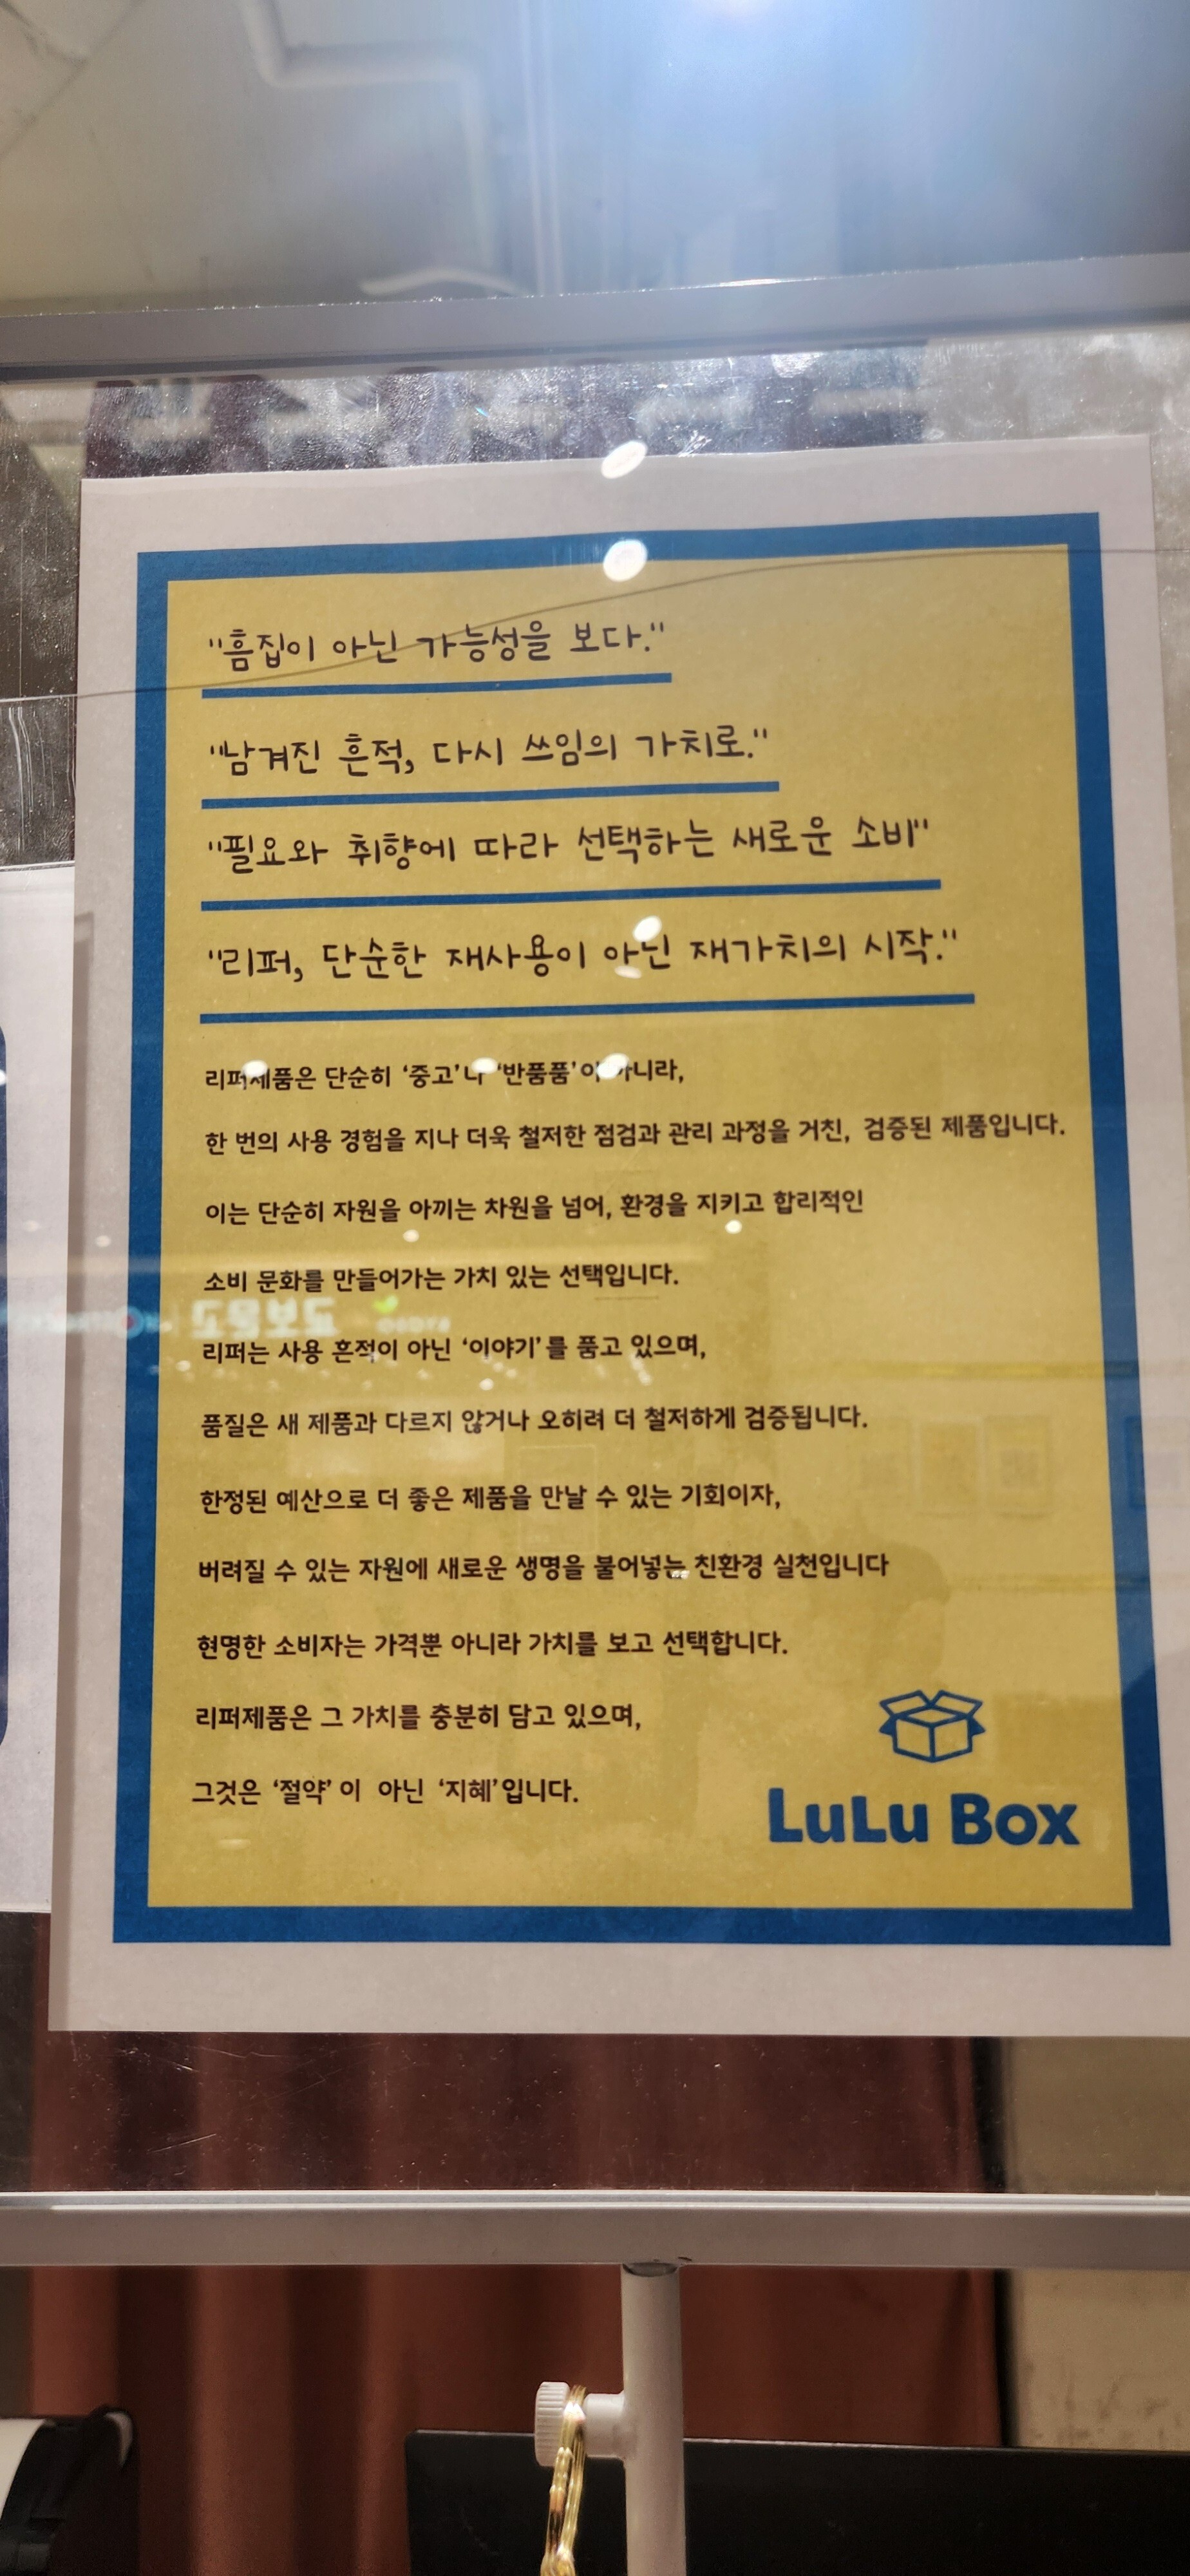 "흠집이 아닌 가능성을 보다."
"남겨진 흔적, 다시 쓰임의 가치로."
"필요와 취향에 따라 선택하는 새로운 소비"
"리퍼, 단순한 재사용이 아닌 재가치의 시작."
리퍼제품은 단순히 ‘중고’나 ‘반품품’이 아니라,
한 번의 사용 경험을 지나 더욱 철저한 점검과 관리 과정을 거친, 검증된 제품입니다.
이는 단순히 자원을 아끼는 차원을 넘어, 환경을 지키고 합리적인
소비 문화를 만들어가는 가치 있는 선택입니다.
교보문고
리퍼는 사용 흔적이 아닌 ‘이야기’를 품고 있으며,
품질은 새 제품과 다르지 않거나 오히려 더 철저하게 검증됩니다.
한정된 예산으로 더 좋은 제품을 만날 수 있는 기회이자,
버려질 수 있는 자원에 새로운 생명을 불어넣는 친환경 실천입니다
현명한 소비자는 가격뿐 아니라 가치를 보고 선택합니다.
리퍼제품은 그 가치를 충분히 담고 있으며,
그것은 ‘절약’이 아닌 ‘지혜’입니다.
LuLu Box